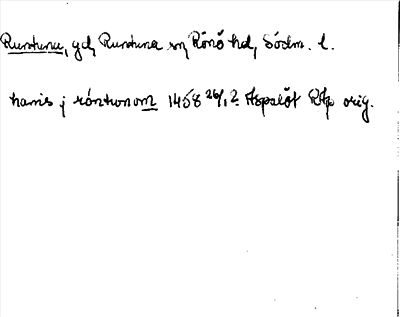 Runtuna, gd, Runtuna sn, Rönö hd, Södm. l.
hanis j róntwnom 1458 26/1 ? Aspelöt RAp orig.